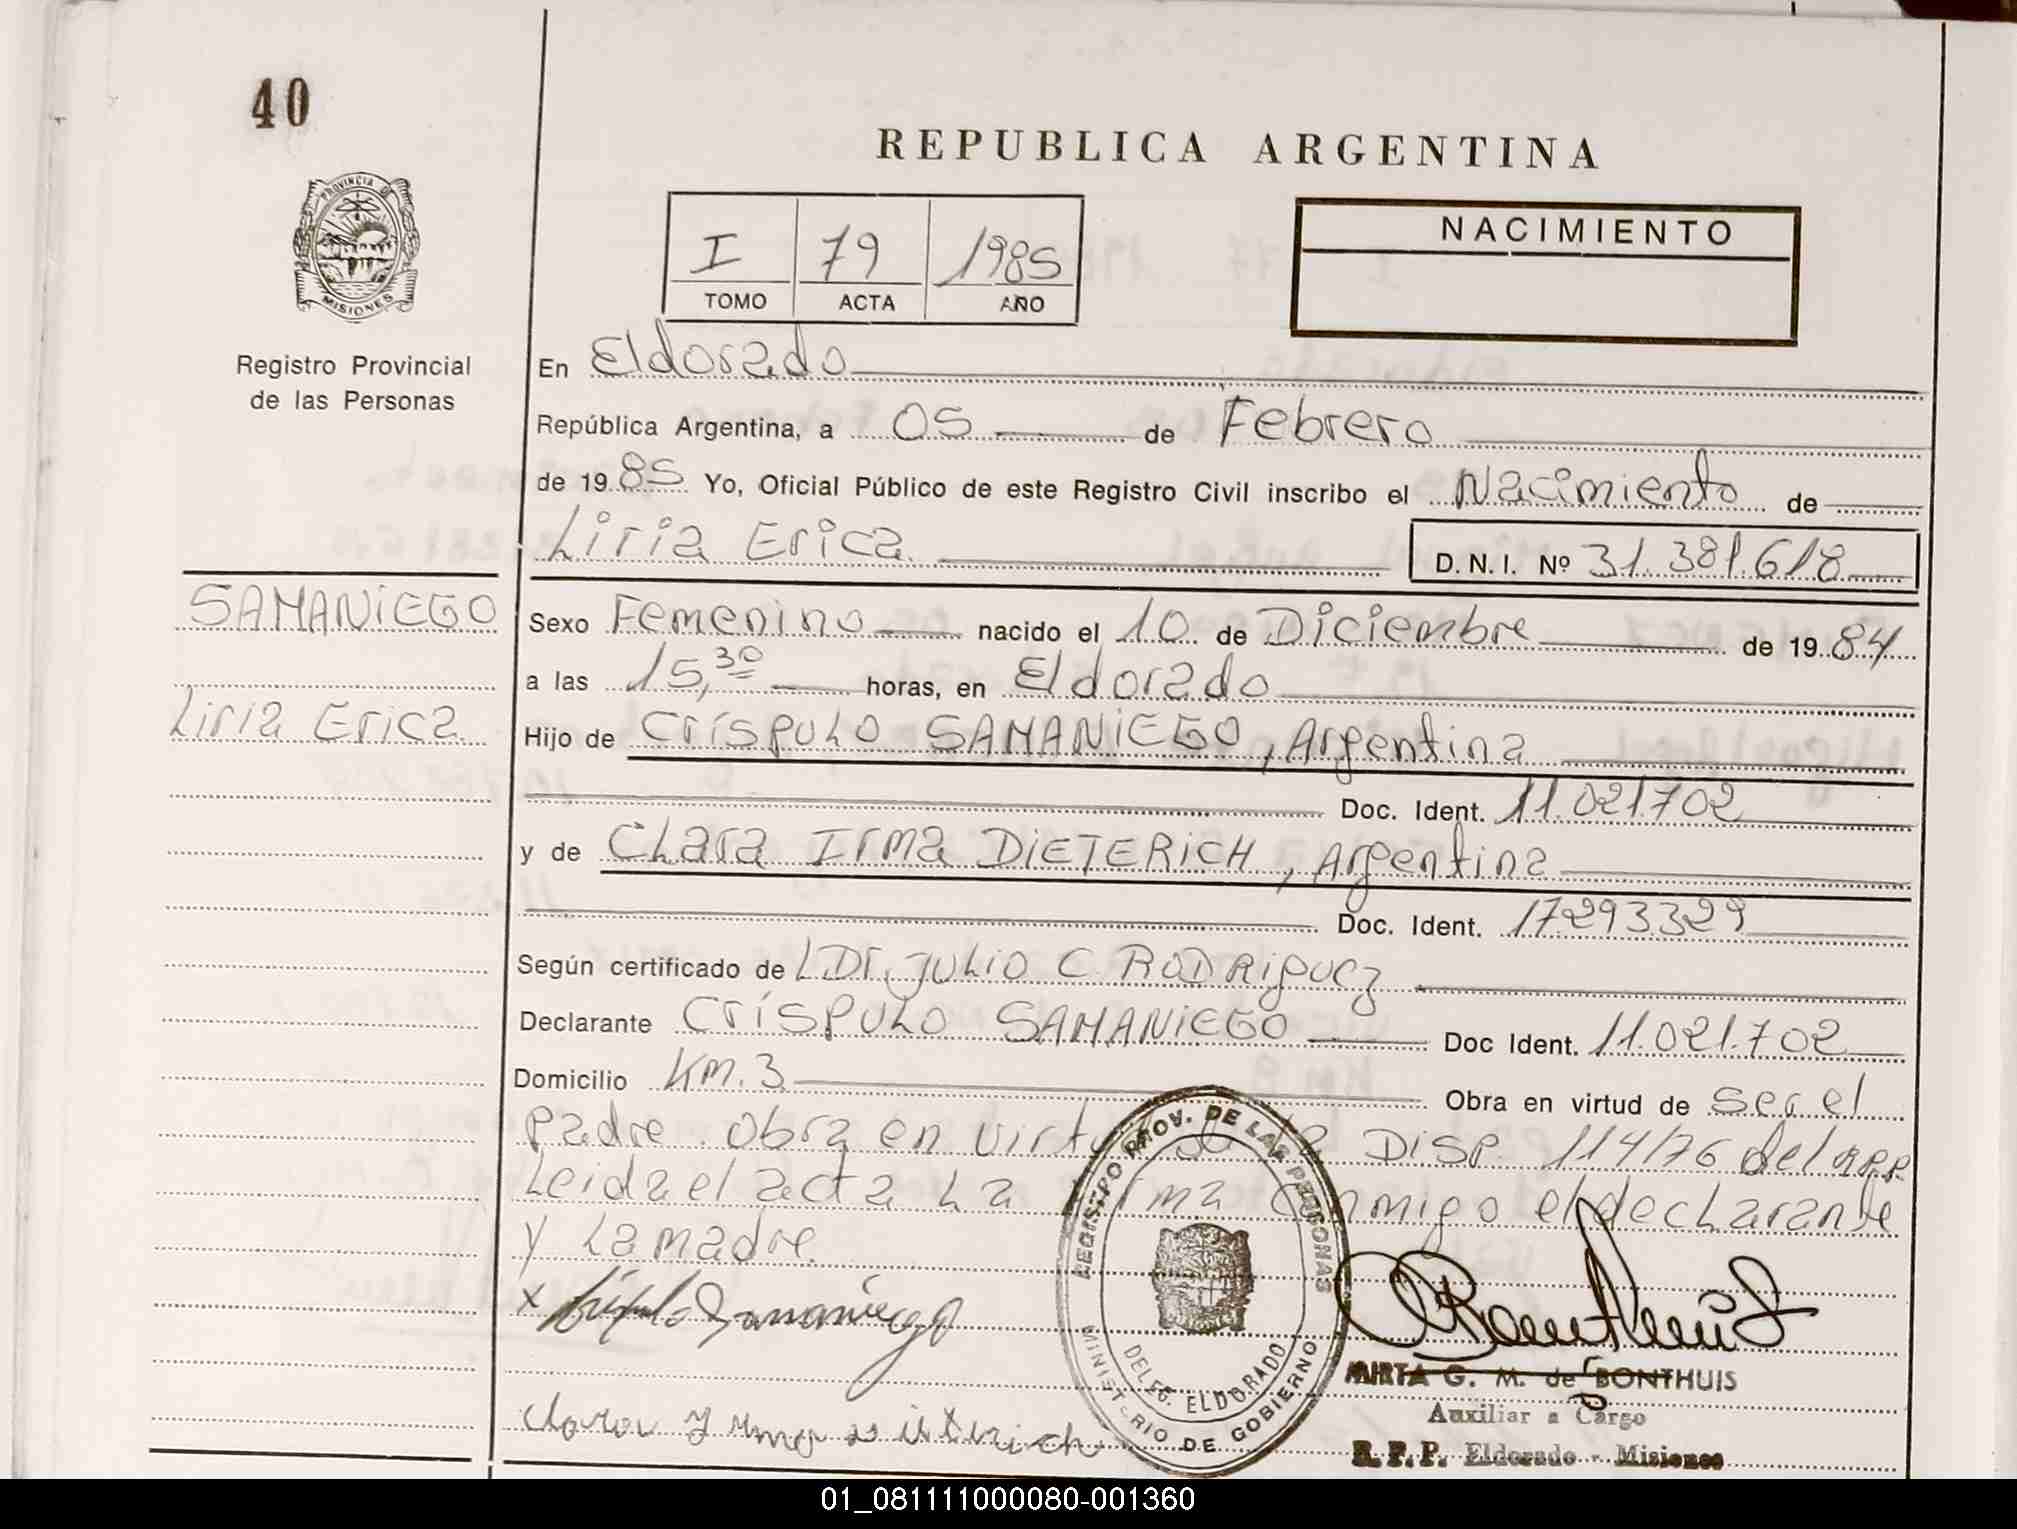 40
REPUBLICA ARGENTINA
PROVINCIA D
MISIONES
I 79 1985
TOMO ACTA AÑO
NACIMIENTO
Registro Provincial
de las Personas
En Eldorado
República Argentina, a 05 de Febrero
de 1985 Yo, Oficial Público de este Registro Civil inscribo el Nacimiento de
Liria Erica D. N. I. Nº 31.381.618
SAMANIEGO
Sexo Femenino nacido el 10 de Diciembre de 1984
a las 15,30 horas, en Eldorado
Liria Erica
Hijo de Críspulo SAMANIEGO, Argentina
Doc. Ident. 11.021.702
y de Clara Irma DIETERICH, Argentina
Doc. Ident. 17.293.329
Según certificado de L DT. JULIO C. RODRIGUEZ
Declarante Críspulo SAMANIEGO Doc Ident. 11.021.702
Domicilio Km. 3 Obra en virtud de ser el
padre. obra en virtu la DISP. 114/76 del R.P.P.
Leida el acta La rma onmigo el declarante
y La madre.
x Críspulo Samaniego
Clara Yrma Dieterich
REGISTRO PROV. DE LAS PERSONAS
DELEG. ELDORADO
MINISTERIO DE GOBIERNO
MIRTA G. M. de BONTHUIS
Auxiliar a Cargo
R. P. P. Eldorado - Misiones
01_081111000080-001360